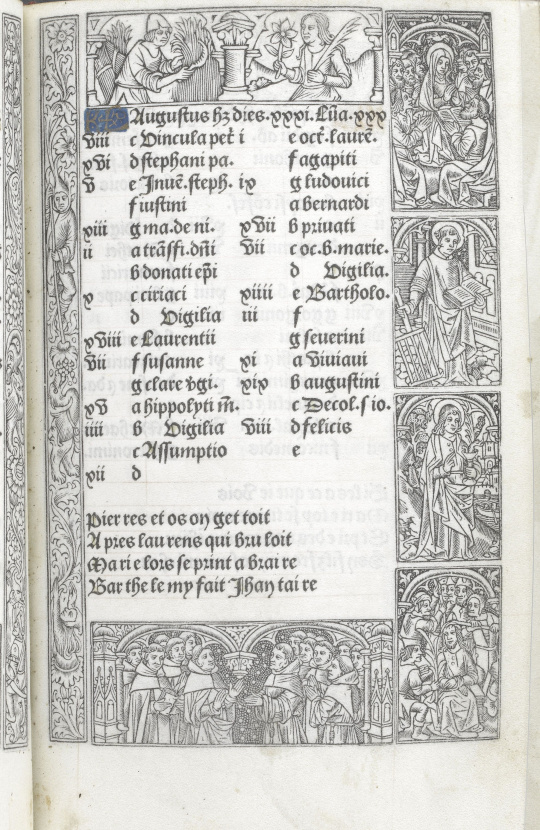 KL Augustus hz dies. xxxi. Lūa. xxx
viii c Vincula pet̄ i
xvi d stephani pa.
v e Inuē. steph. ix
f iustini
xiii g ma. de ni.
ii a trāsfi. dn̄i
b donati ep̄i
x c ciriaci
d Vigilia
xviii e Laurentii
vii f susanne
g clare vgi.
xv a hippolyti m̄.
iiii b Vigilia
c Assumptio
xii d
e oct̄. laurē.
f agapiti
g ludouici
a bernardi
xvii b priuati
vii c oc. b. marie.
d Vigilia.
xiiii e Bartholo.
iii f
g seuerini
xi a Viuiaui
xix b augustini
c Decol. s io.
viii d felicis
e
Pier res et os on get toit
A pres lau rens qui bru loit
Ma ri e lors se print a brai re
Bar the le my fait Jhan tai re